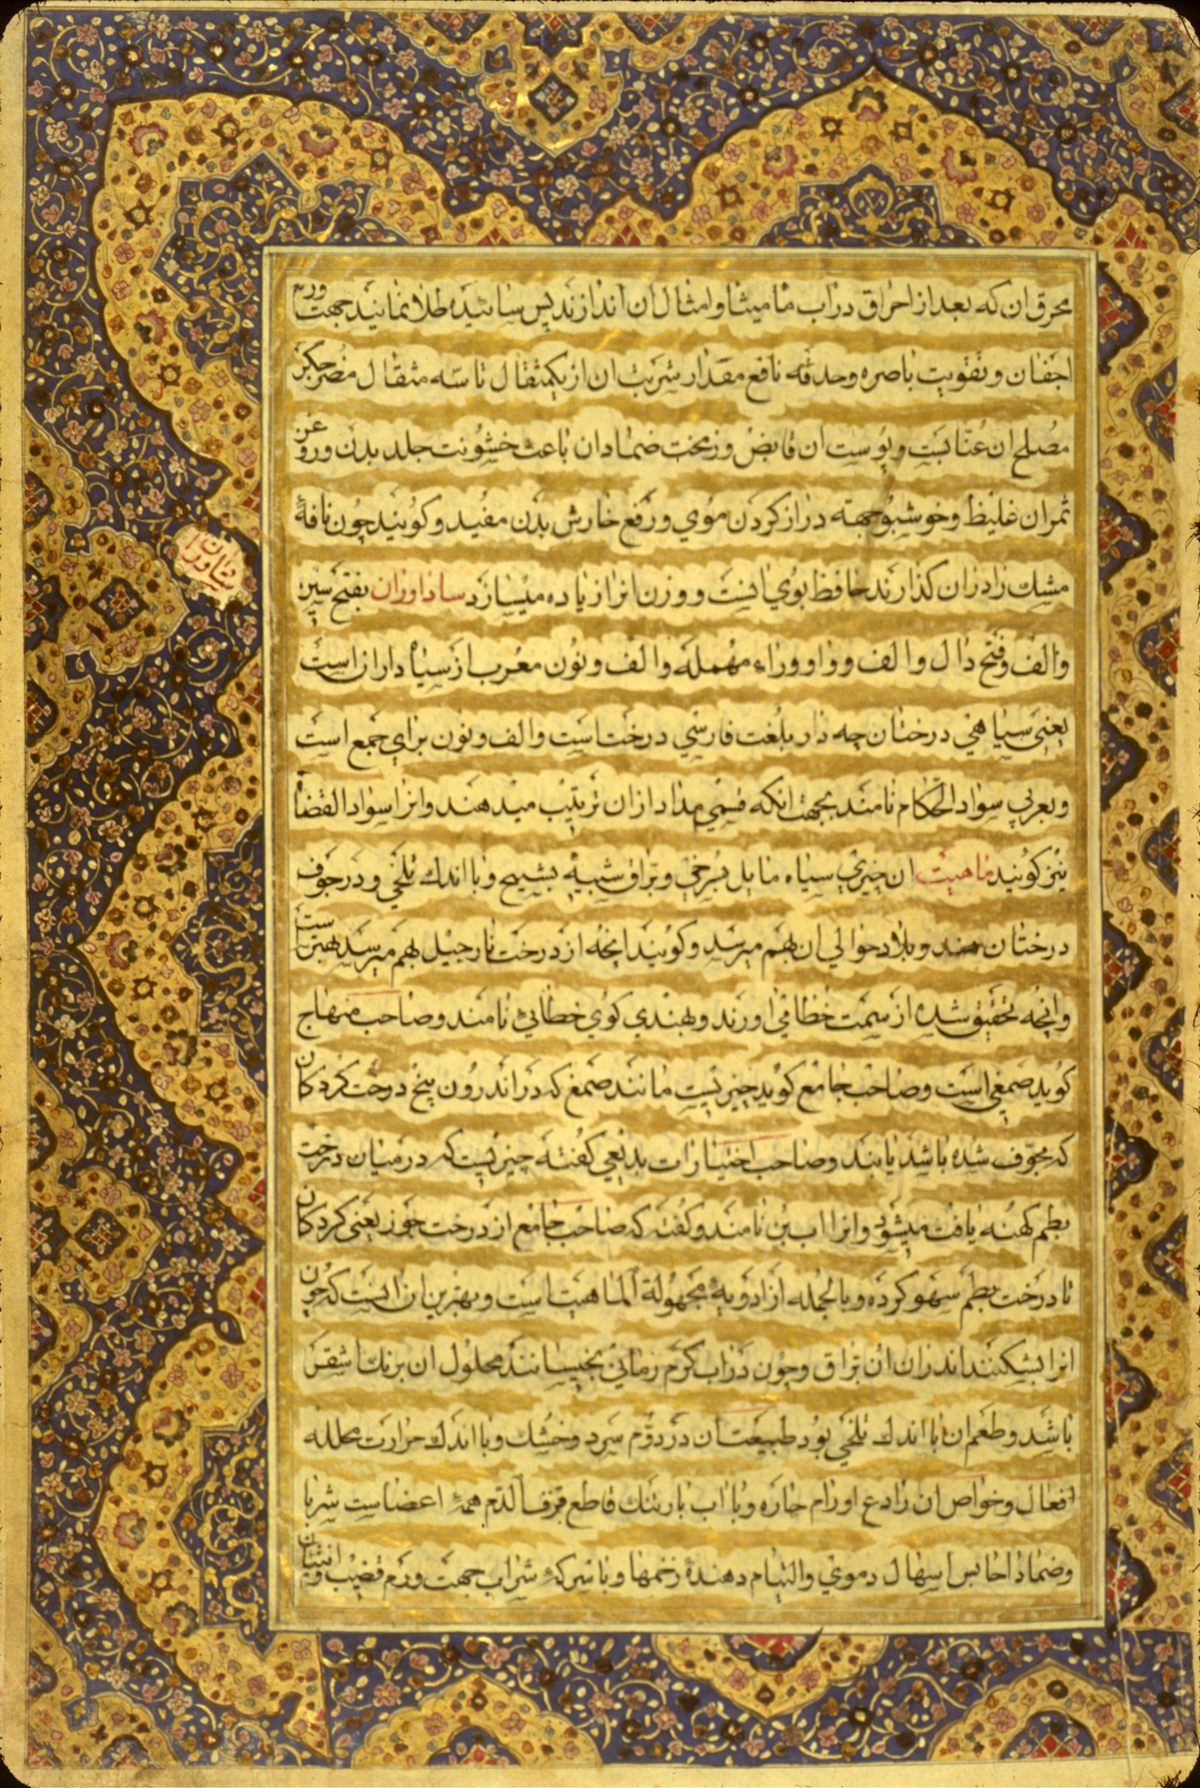 محرق ان که بعد از احراق در اب مامیثا و امثال ان اندازند پس سائیده طلا نمایند جهت ورم
اجفان و تقویت باصره و حدقه نافع مقدار شربت ان از یکمثقال تا سه مثقال مضر جگر
مصلح ان عنابست و پوست ان قابض و زمخت ضماد ان باعث خشونت جلد بدن و روغن
ثمر ان غلیظ و خوشبو جهة دراز کردن موی و رفع خارش بدن مفید و کویند چون نافهٔ
مشک را در ان کذارند حافظ بوی انست و وزن انرا زیاده میسازد ساداوران بفتح سین
والف و فتح دال و الف و واو و راء مهمله و الف و نون معرب از سیاه داران است
یعنی سیاهی درختان چه دار بلغت فارسی درختاست و الف و نون برای جمع است
و بعربی سواد الحکام نامند بجهت انکه قسمی مداد ازان ترتیب میدهند و انرا سواد القضاة
نیز کویند ماهیت ان چیزی سیاه مایل بسرخی و براق شبیه بشیح و با اندک تلخی و در جوف
درختان هند و بلاد حوالی ان بهم میرسد و کویند انچه از درخت نارجیل بهم میرسد بهترست
و انچه تحقیق شده از سمت خطا می اورند و بهندی کوی خطائی نامند و صاحب منهاج
کوید صمغی است و صاحب جامع کوید چیزیست مانند صمغ که در اندرون بیخ درخت کردکان
که مجوف شده باشد یابند و صاحب اختیارات بدیعی کفته چیزیست که در میان درخت
بطم کهنه یافت میشود و انرا اب بن نامند و کفته که صاحب جامع از درخت جوز یعنی کردکان
تا درخت بطم سهو کرده و بالجمله از ادویهٔ مجهولة الماهیت است و بهترین ان انست که چون
انرا بشکنند اندران ان براق و چون در اب کرم زمانی بخیسانند محلول ان برنک اشقر
باشد و طعم ان با اندک تلخی بود طبیعت ان در دوم سرد و خشک و با اندک حرارت محلله
افعال و خواص ان رادع اورام حاره و با اب بارتنک قاطع نزف الدم همهٔ اعضاست شربا
و ضمادا حابس اسهال دموی و التیام دهندهٔ زخمها و با سرکهٔ شراب جهت ورم قضیب و انثیان
شاوران